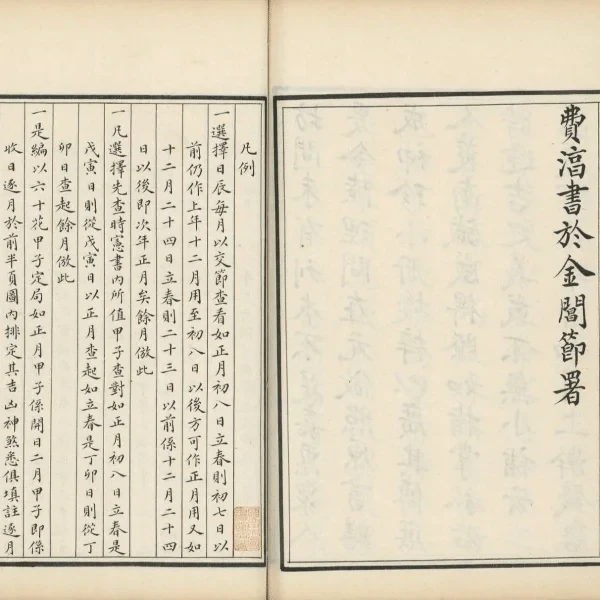 費淯書於金閶節署
凡例
一選擇日辰每月以交節查看如正月初八日立春則初七日以
前仍作上年十二月用至初八日以後方可作正月用又如
十二月二十四日立春則二十三日以前係十二月二十四
日以後即次年正月矣餘月倣此
一凡選擇先查時憲書內所值甲子查對如正月初八日立春是
戊寅日則從戊寅日以正月查起如立春是丁卯日則從丁
卯日查起餘月倣此
一是編以六十花甲子定局如正月甲子係開日二月甲子即係
收日逐月於前半頁圖內排定其吉凶神煞悉俱填註逐月